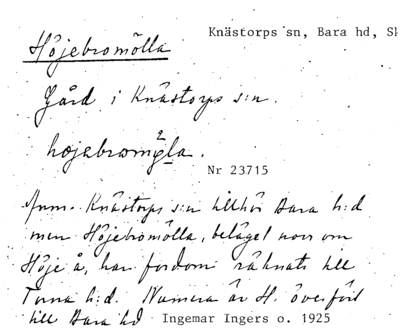 Knästorps sn, Bara hd, Sk
Höjebromölla
Gård i Knästorps s:n.
Nr 23715
Anm. Knästorps s:n tillhör Bara h:d
men Höjebromölla, beläget norr om
Höje å, har fordom räknats till
Torna h:d. Numera är H. överförd
till Bara hd
Ingemar Ingers o. 1925